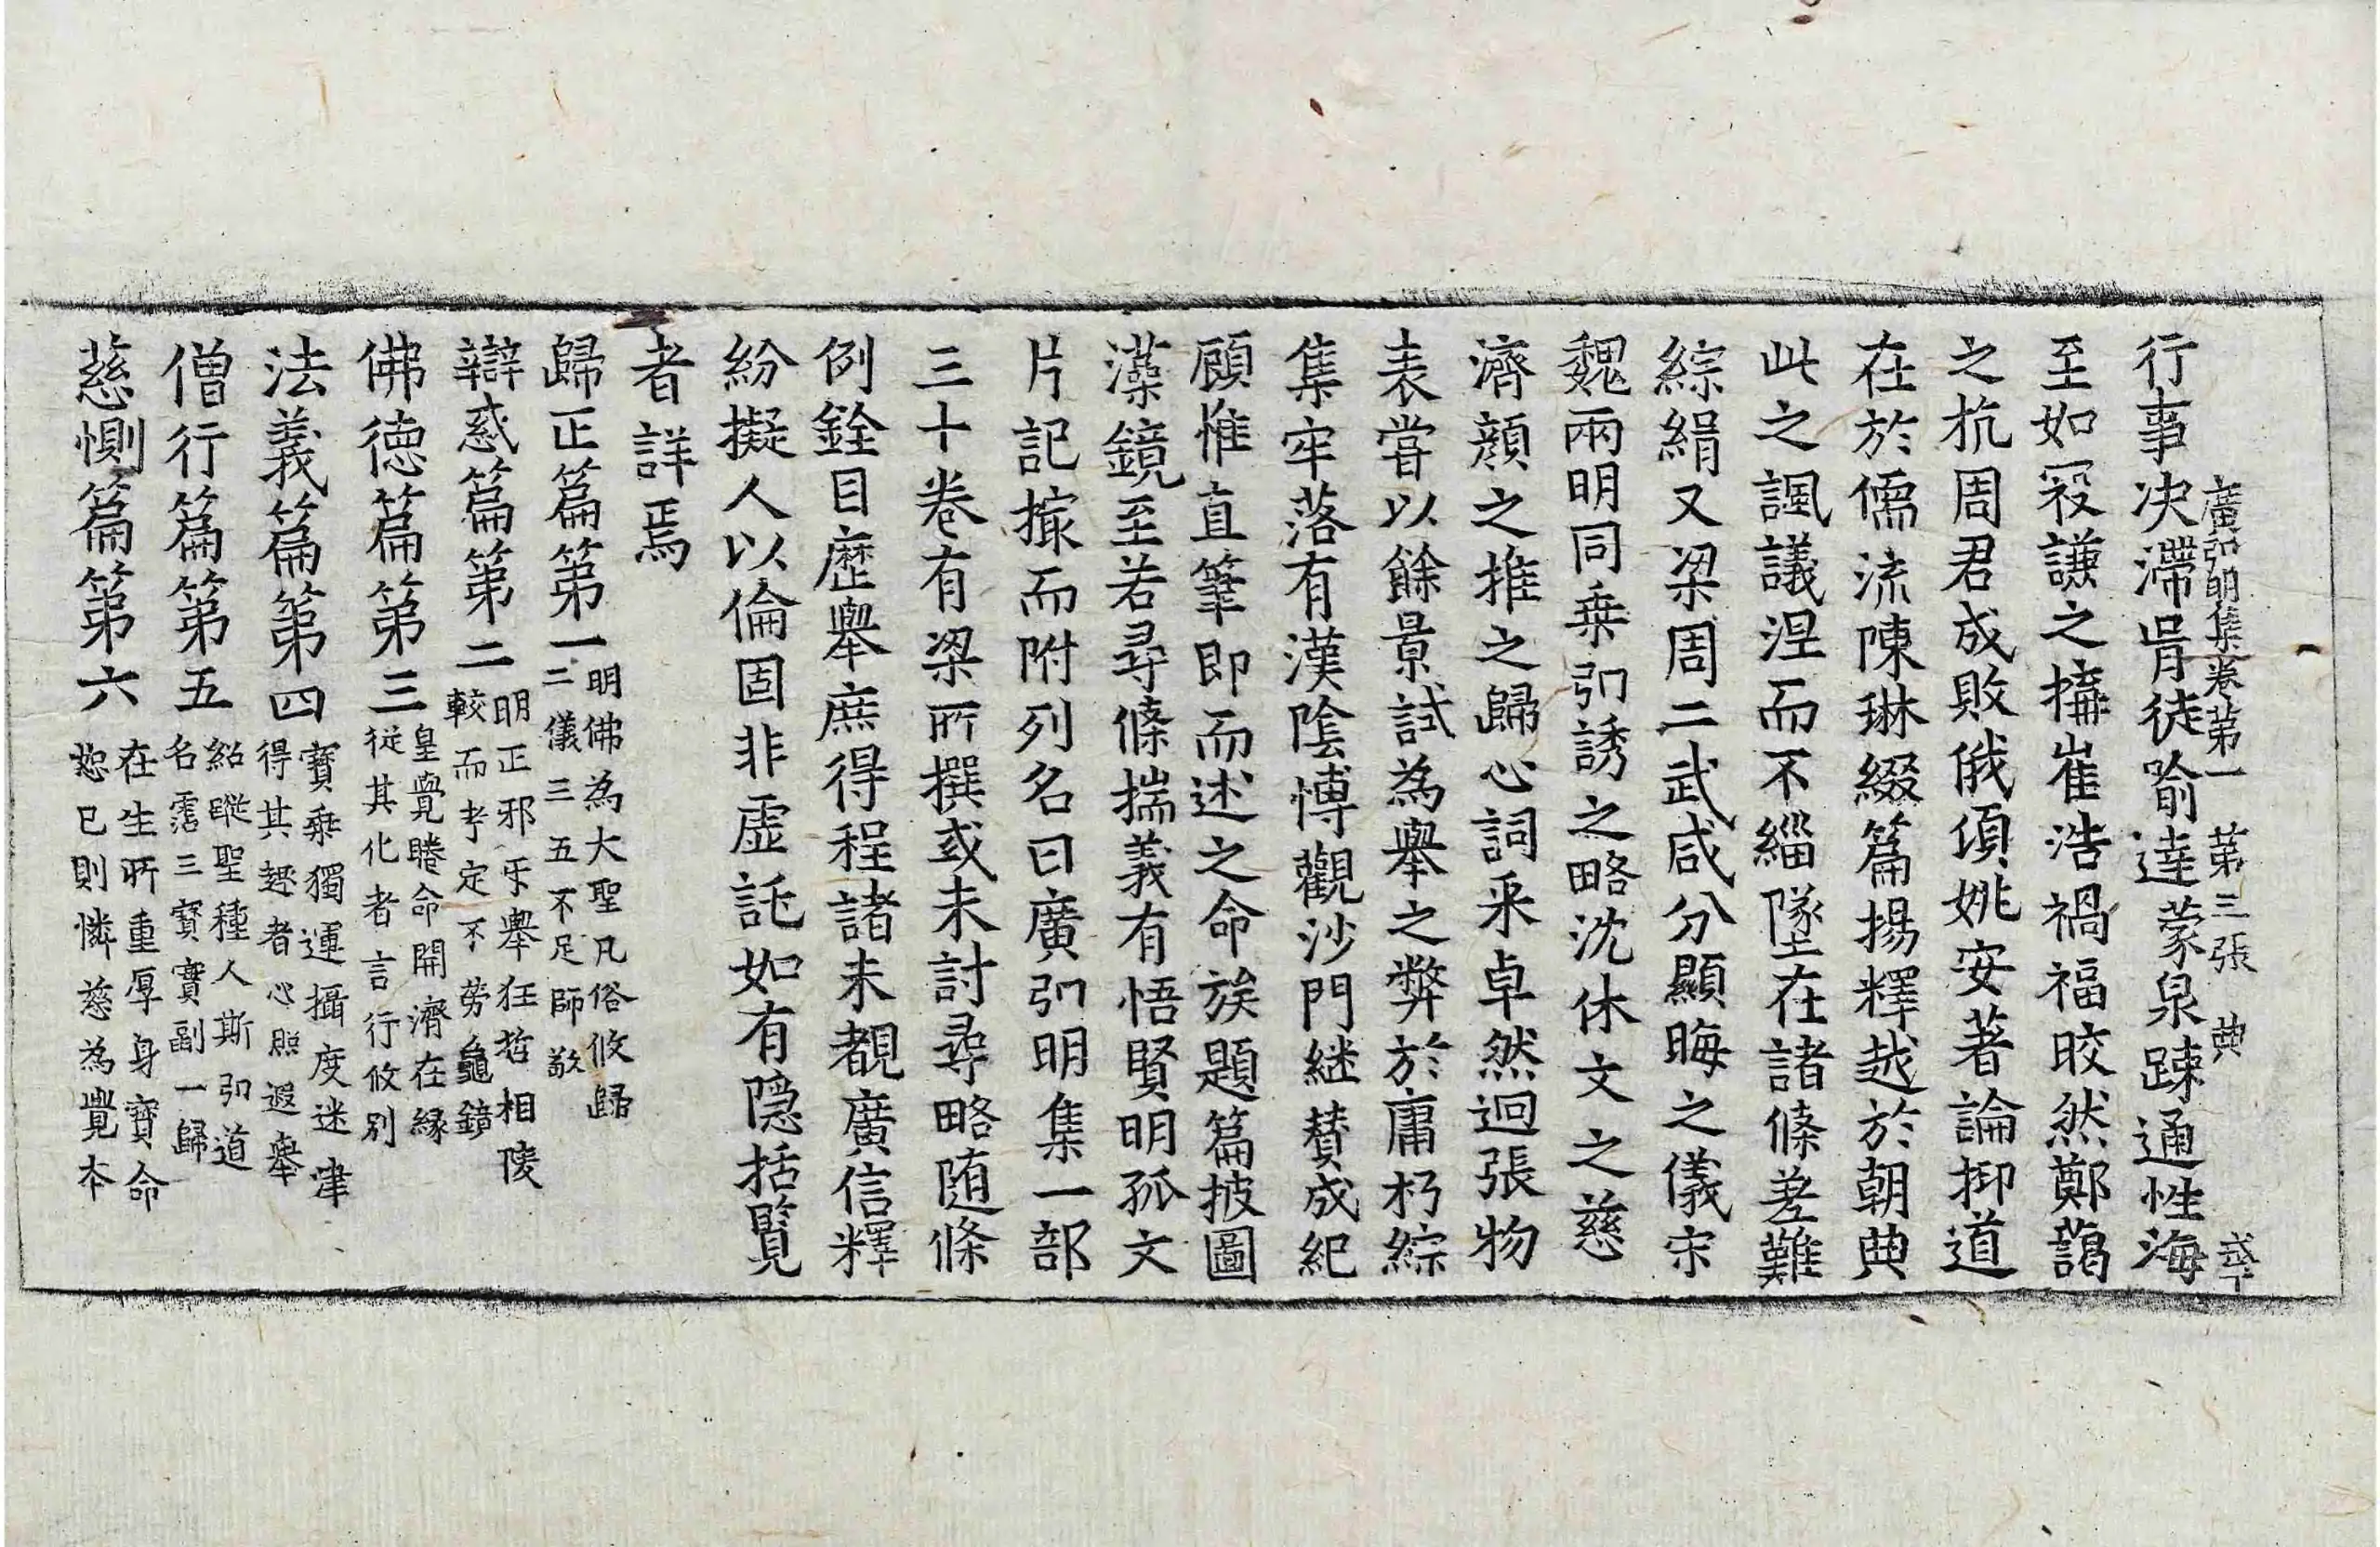 廣弘明集卷第一 第三張 典
行事决滯胥徒喻達蒙泉踈通性海
至如寇謙之搆崔浩禍福皎然鄭藹
之抗周君成敗俄頃姚安著論抑道
在於儒流陳琳綴篇揚釋越於朝典
此之諷議涅而不緇墜在諸條差難
綜緝又梁周二武咸分顯晦之儀宋
魏兩明同乗弘誘之略沈休文之慈
濟顔之推之歸心詞采卓然迥張物
表嘗以餘景試為舉之弊於庸朽綜
集牢落有漢陰博觀沙門継賛成紀
顧惟直筆即而述之命族題篇披圖
藻鏡至若尋條揣義有悟賢明孤文
片記撮而附列名曰廣弘明集一部
三十卷有梁所撰或未討尋略随條
例銓目歷舉庶得程諸未覩廣信釋
紛擬人以倫固非虛託如有隠括覽
者詳焉
歸正篇第一 明佛為大聖凡俗攸歸
二儀三五不足師敬
辯惑篇第二 明正邪乎舉狂哲相陵
較而考定不勞龜鏡
佛徳篇第三 皇覺睠命開濟在緣
従其化者言行攸別
法義篇第四 寶乗獨運攝度迷津
得其趣者心照遐舉
僧行篇第五 紹蹤聖種人斯弘道
名霑三寶實副一歸
慈惻篇第六 在生所重厚身寶命
恕已則憐慈為覺本